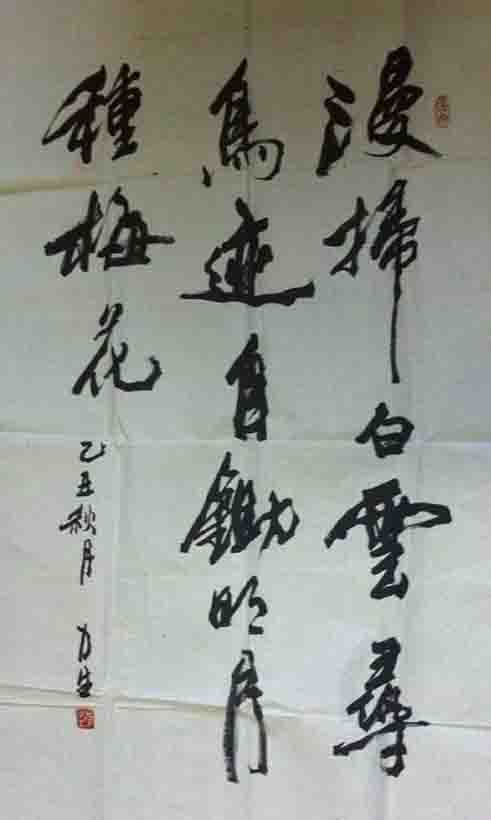 漫掃白雲尋
鳥迹自鋤明月
種梅花
乙丑秋月 力生